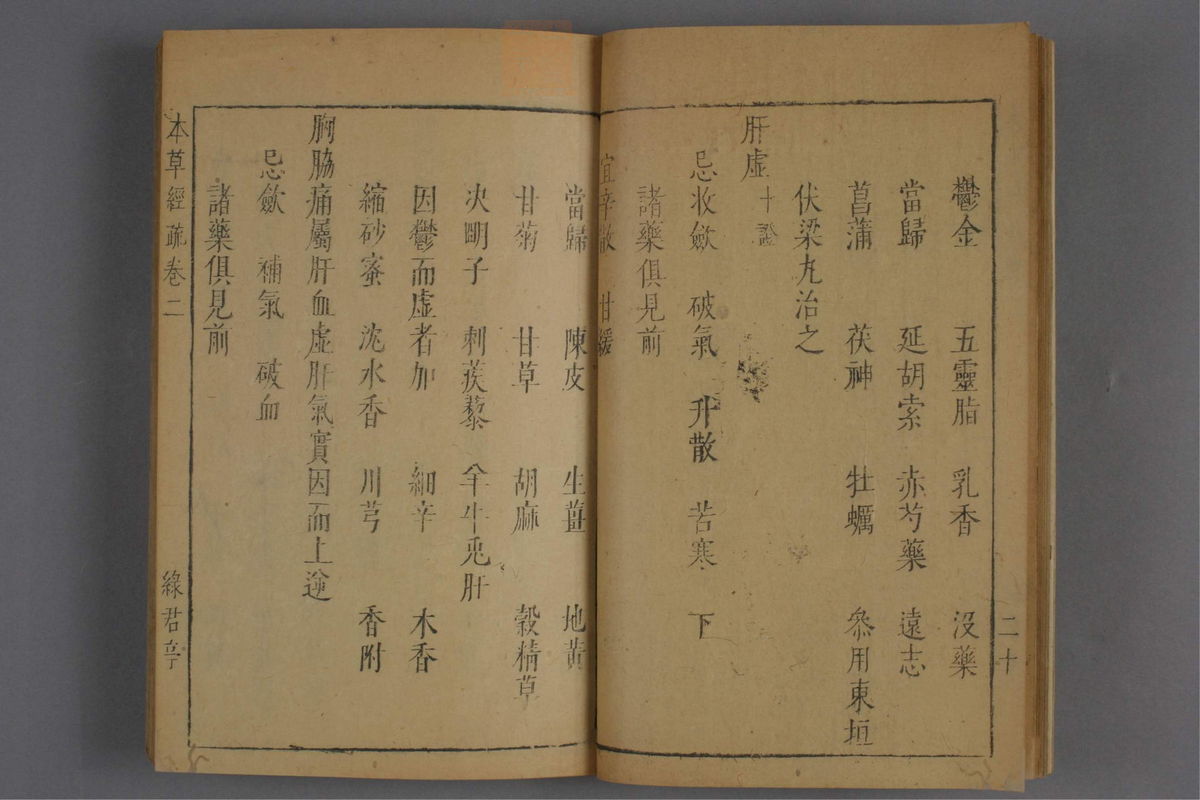 二十
鬱金 五靈脂 乳香 没藥
當歸 延胡索 赤芍藥 遠志
菖蒲 茯神 牡蠣 叅用東垣
伏梁丸治之
肝虛十證
忌收斂 破氣 升散 苦寒 下
諸藥俱見前
宜辛散 甘緩
當歸 陳皮 生薑 地黃
甘菊 甘草 胡麻 穀精草
决明子 刺蒺藜 羊牛兎肝
因鬱而虛者加 細辛 木香
縮砂蜜 沈水香 川芎 香附
胸脇痛屬肝血虛肝氣實因而上逆
忌斂 補氣 破血
諸藥俱見前
本草經疏卷二 綠君亭